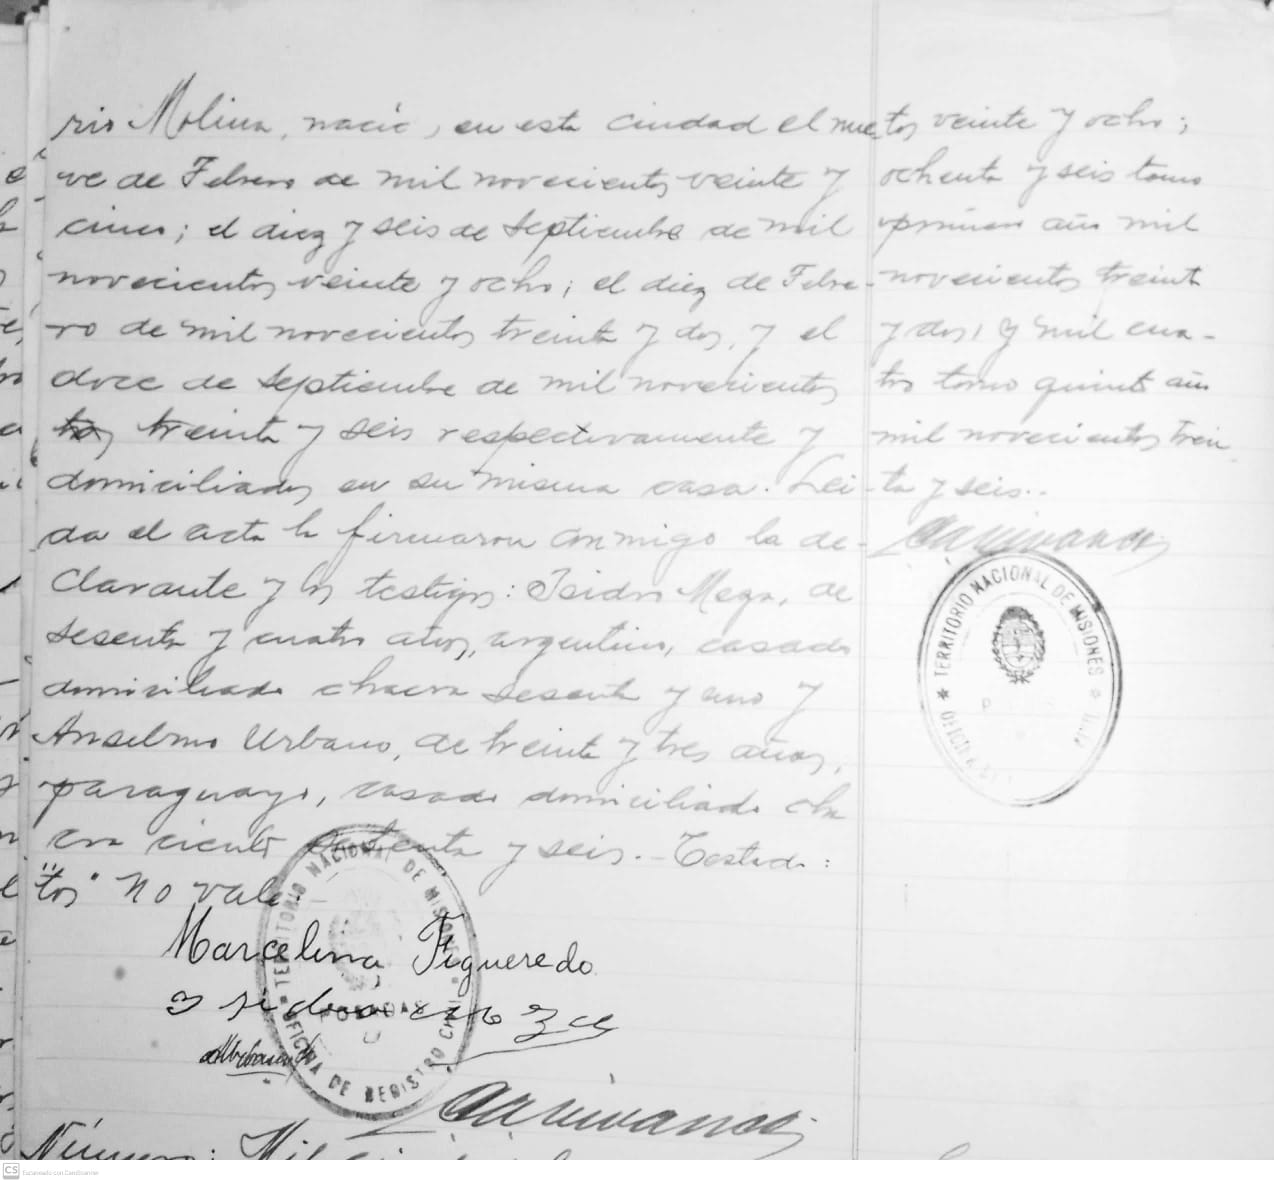 rio Molina, nació, en esta ciudad el nue
ve de Febrero de mil novecientos veinte y
cinco; el diez y seis de Septiembre de mil
novecientos veinte y ocho; el diez de Febre-
ro de mil novecientos treinta y dos, y el
doce de Septiembre de mil novecientos
tos treinta y seis respectivamente y
domiciliados en su misma casa. Lei-
da el acta la firmaron conmigo la de-
clarante y los testigos: Isidro Meza, de
sesenta y cuatro años, argentino, casado
domiciliado chacra sesenta y uno y
Anselmo Urbano, de treinta y tres años,
paraguayo, casado domiciliado cha
cra ciento setenta y seis.- Testado:
"tos" no vale.
Marcelina Figueredo
TERRITORIO NACIONAL DE MISIONES
POSADAS
OFICINA DE REGISTRO CIVIL
Número: Mil
tos veinte y ocho;
ochenta y seis tomo
primero año mil
novecientos treinta
y dos, y mil cua-
tro tomo quinto año
mil novecientos trein
ta y seis..
TERRITORIO NACIONAL DE MISIONES
CS Escaneado con CamScanner